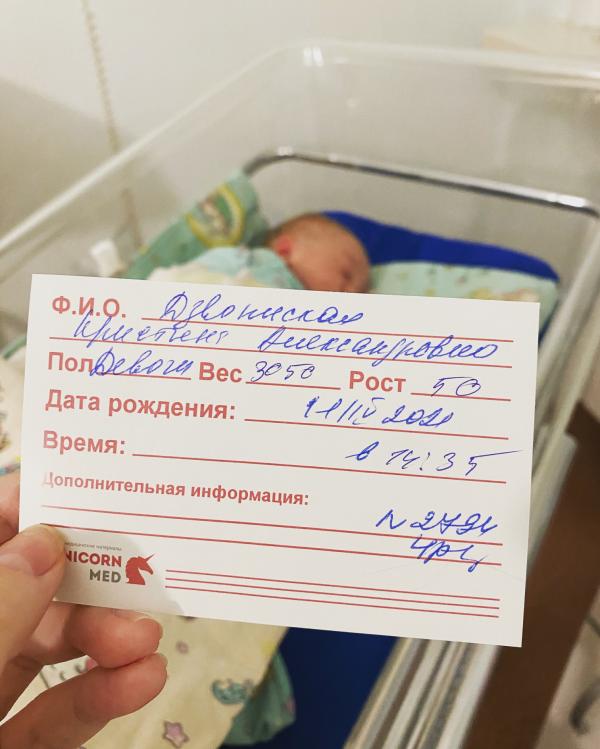 Ф.И.О. Дзвониская
Александровна
Пол Девочк Вес 3050 Рост 50
Дата рождения: 11/IV 2021
Время: в 14:35
Дополнительная информация:
N 2724
медицинские материалы
NICORN
MED